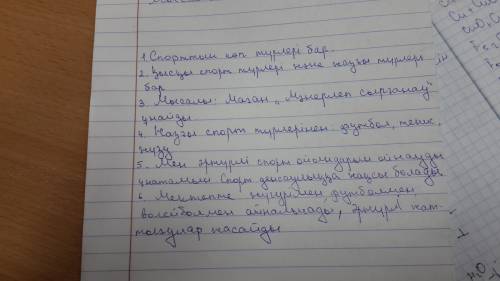 1. Спорттын көп түрлері бар.
2. Қысқы спорт түрлері және жазғы түрлері
бар
3. Мысалы: Маған „Мәнерлеп сырғанау"
ұнайды
4. Жазғы спорт түрлерінен футбол, теник,
жүзу
5. Мен әртүрлі спорт ойындарын ойнауды
ұнатамын Спорт денсаулыққа жақсы болады
6. Мектепте жүгірумен, футболмен
волейболмен айналысады, әртүрлі жат-
тығулар жасайды
Cu
H₂O